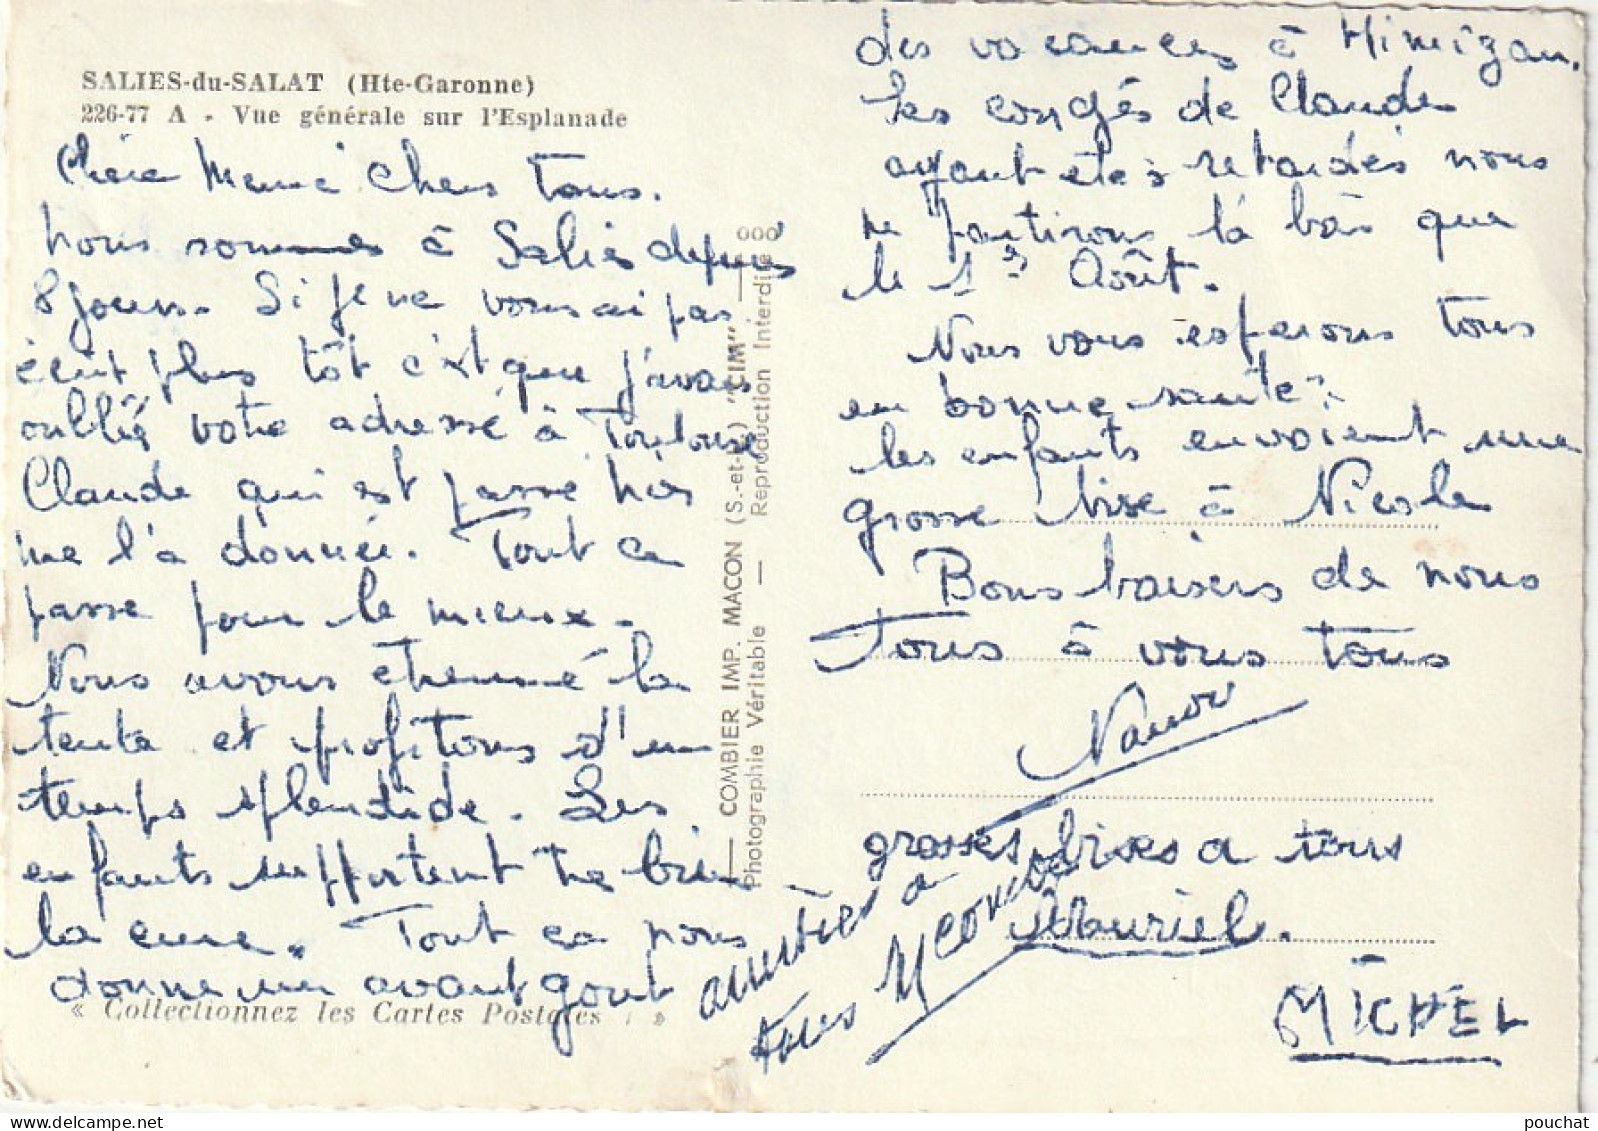 SALIES-du-SALAT (Hte-Garonne)
226-77 A - Vue générale sur l'Esplanade
Chère Mémé chers Tous.
Nous sommes à Salies depuis
8 jours. Si je ne vous ai pas
écrit plus tôt c'est que j'avais
oublié votre adresse à Toulouse
Claude qui est passé hier
me l'a donnée. Tout ça
passe pour le mieux.
Nous avons étrenné la
tente et profitons d'un
temps splendide. Les
enfants supportent très bien
la cure. Tout ça nous
donne un avant gout
« Collectionnez les Cartes Postales »
— COMBIER IMP. MACON (S.-et-L.) "CIM" —
Photographie Véritable — Reproduction Interdite
des vacances à Mimizan.
Les congés de Claude
ayant étés retardés nous
ne partirons là bàs que
le 1er Août.
Nous vous espérons tous
en bonne santé.
les enfants envoient une
grosse bise à Nicole
Bons baisers de nous
Tous à vous tous
grosses bises a tous
Muriel.
amitiés a
tous
MICHEL
pouchat